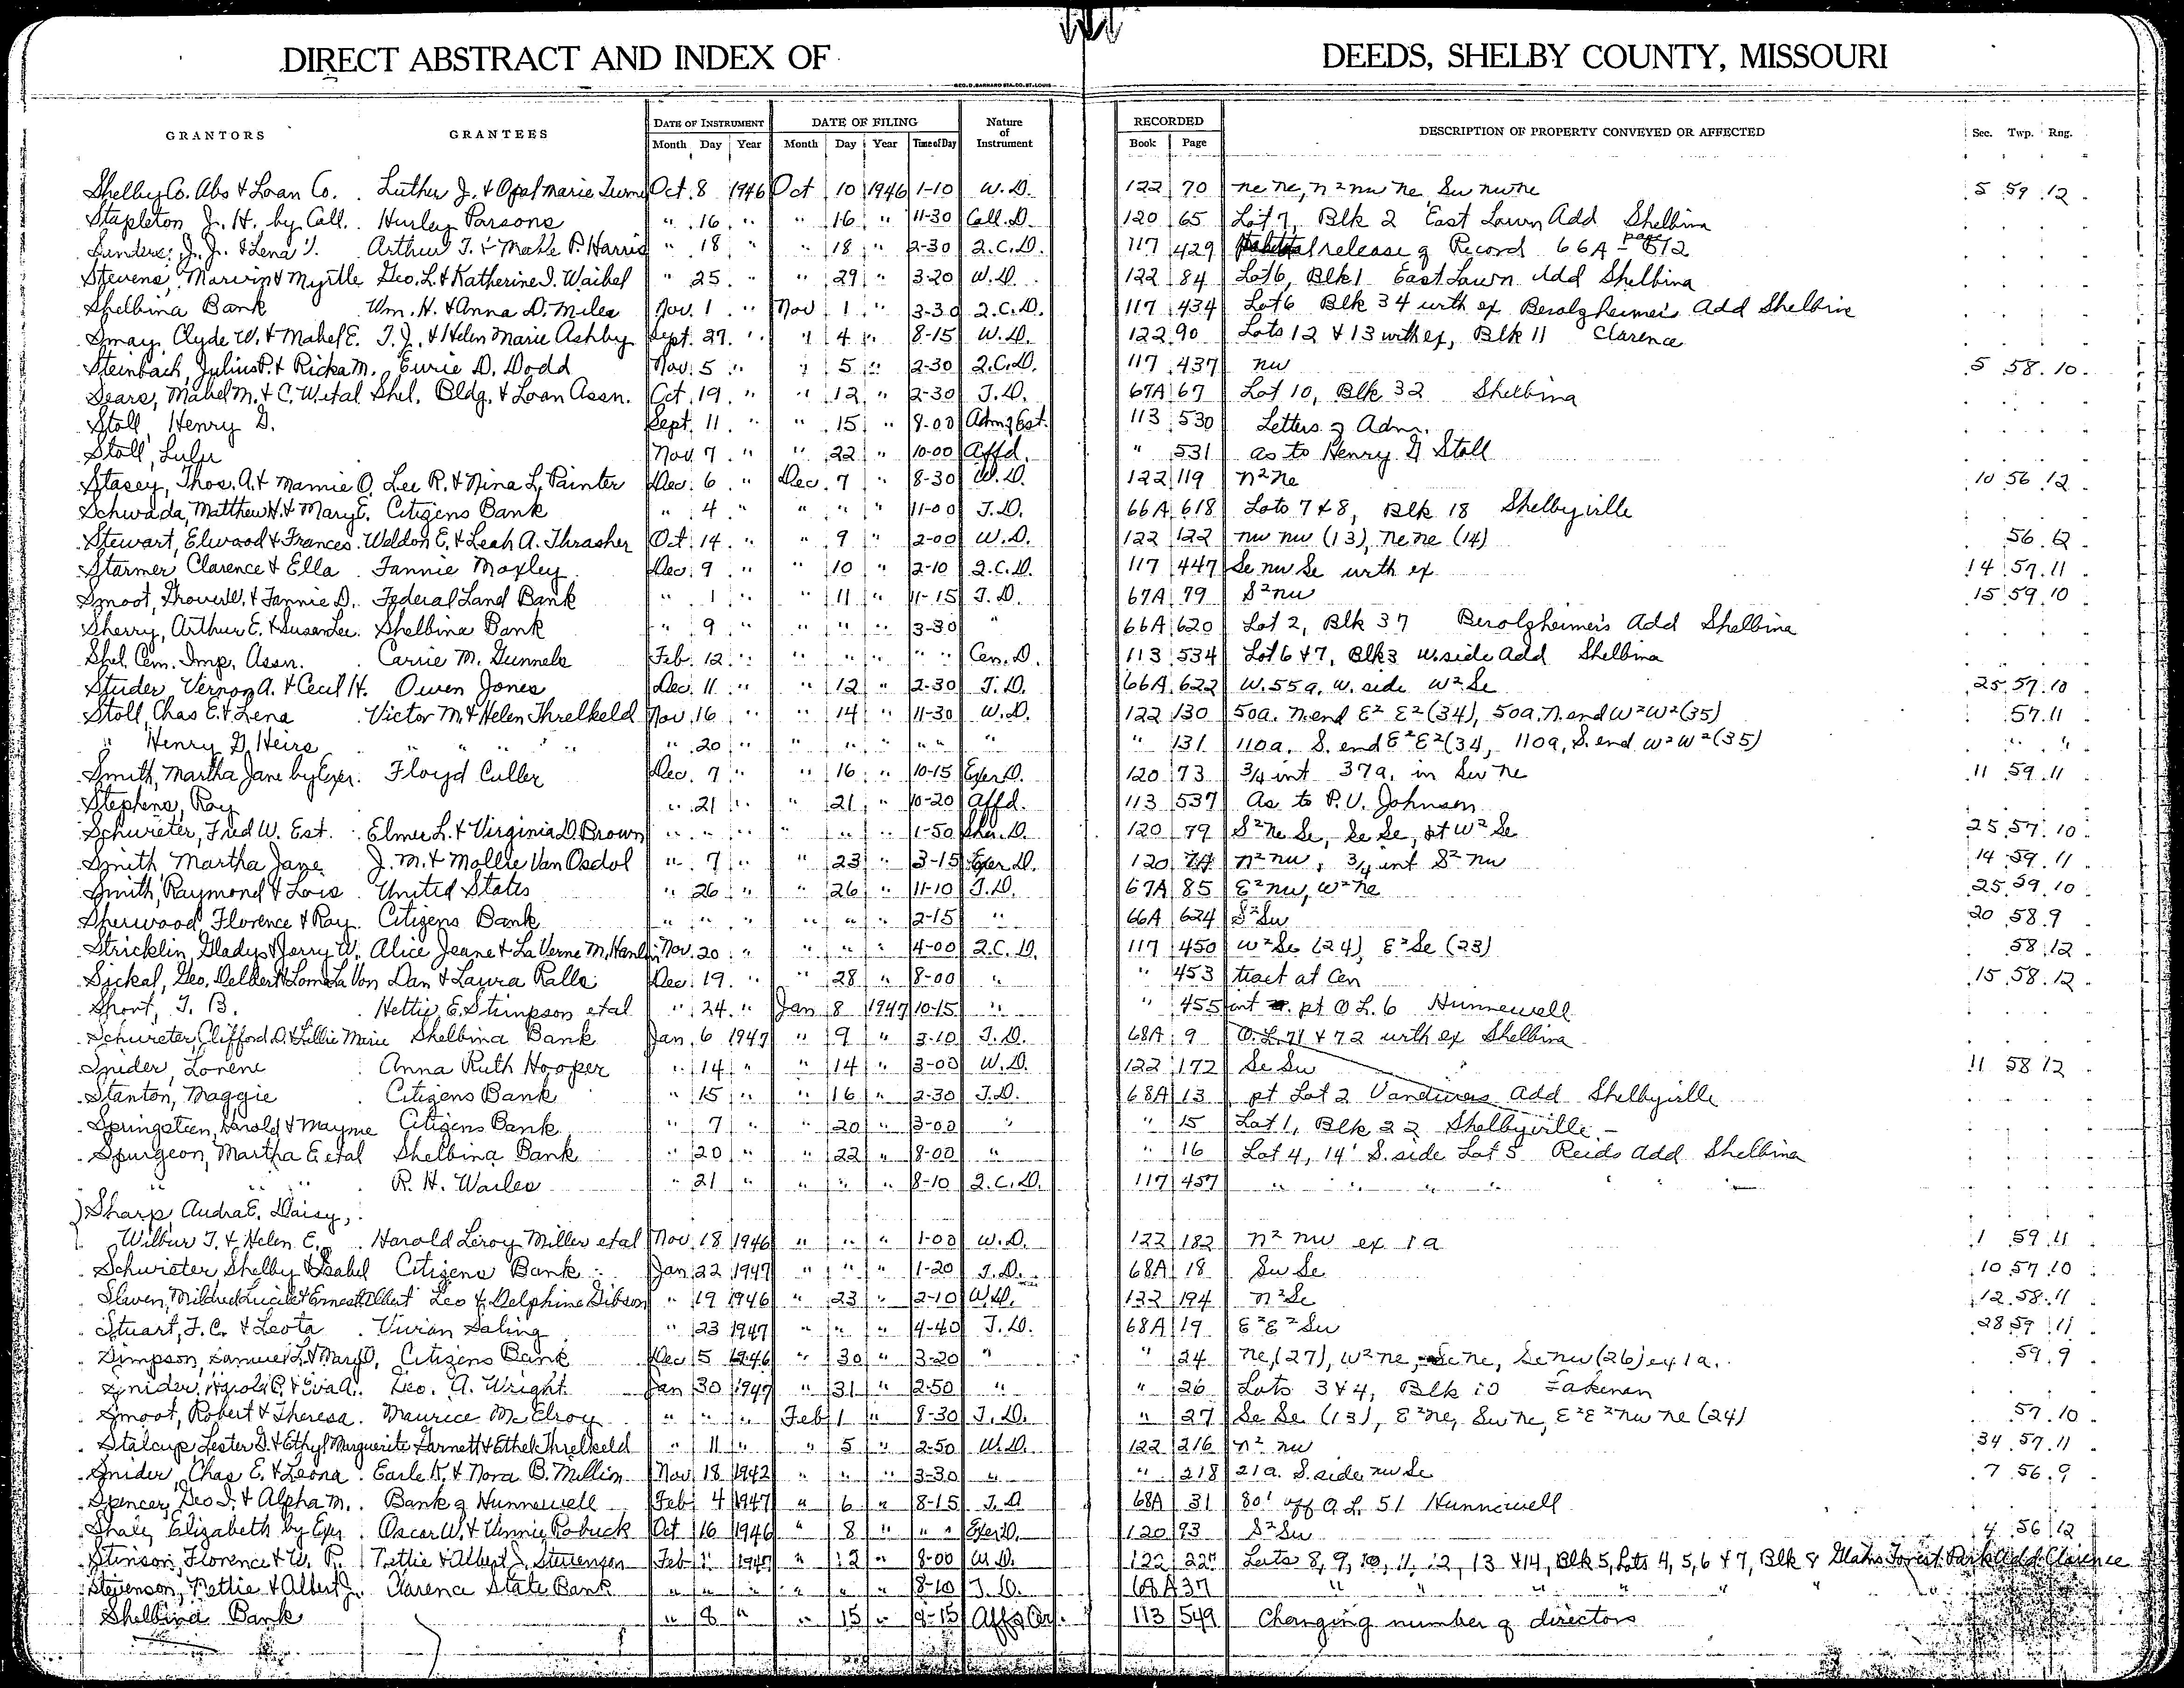 DIRECT ABSTRACT AND INDEX OF DEEDS, SHELBY COUNTY, MISSOURI
GEO. D. BARNARD STA. CO. ST. LOUIS
GRANTORS GRANTEES DATE OF INSTRUMENT DATE OF FILING Nature of Instrument RECORDED DESCRIPTION OF PROPERTY CONVEYED OR AFFECTED Sec. Twp. Rng.
Month Day Year Month Day Year Time of Day Book Page
Shelby Co. Abs & Loan Co. Luther J. & Opal Marie Oct. 8 1946 Oct 10 1946 1-10 W.D. 122 70 ne ne, n² nw ne Sw nw ne 5 59 12
Stapleton J. H. by Coll. Hurley Parsons " 16 " " 16 " 11-30 Coll. D. 120 65 Lot 7, Blk 2 East Lawn Add Shelbina
J. J. & Lena Arthur T. & P. Harris " 18 " " 18 " 2-30 2.C.D. 117 429 release of Record 66A page 572
Stevens, Marvin & Myrtle Geo. L. & Katherine I. Waibel " 25 " " 29 " 3-20 W.D. 122 84 Lot 6, Blk 1 East Lawn Add Shelbina
Shelbina Bank Wm. H. & Anna D. Miles Nov. 1 " Nov 1 " 3-30 2.C.D. 117 434 Lot 6 Blk 34 with ex Berolzheimer's Add Shelbina
Smay, Clyde W. & Mabel E. T. J. & Helen Marie Ashby Sept. 27 " " 4 " 8-15 W.D. 122 90 Lots 12 & 13 with ex, Blk 11 Clarence
Steinbach, Julius P. & Ricka M. Eurie D. Dodd Nov. 5 " " 5 " 2-30 2.C.D. 117 437 nw 5 58 10
Sears, Mabel M. & C. W. etal Shel. Bldg. & Loan Assn. Oct. 19 " " 12 " 2-30 T.D. 67A 67 Lot 10, Blk 32 Shelbina
Stoll, Henry G. Sept. 11 " " 15 " 8-00 Adm of Est. 113 530 Letters of Adm.
Stoll, Lulu Nov. 7 " " 22 " 10-00 Affd. " 531 as to Henry G Stoll
Stasey, Thos. A. & Mamie O. Lee R. & Nina L. Painter Dec. 6 " Dec. 7 " 8-30 W.D. 122 119 n² ne 10 56 12
Schwada, Matthew H. & Mary E. Citizens Bank " 4 " " " " 11-00 T.D. 66A 618 Lots 7 & 8, Blk 18 Shelbyville
Stewart, Elwood & Frances Weldon E. & Leah A. Thrasher Oct. 14 " " 9 " 2-00 W.D. 122 122 nw nw (13), ne ne (14) 56 12
Starmer Clarence & Ella Fannie Moxley Dec. 9 " " 10 " 2-10 2.C.D. 117 447 Se nw Se with ex 14 57 11
Smoot, Grover W. & Fannie D. Federal Land Bank " 1 " " 11 " 11-15 T.D. 67A 79 S² nw 15 59 10
Sherry, Arthur E. & Susan Lee Shelbina Bank " 9 " " " " 3-30 " 66A 620 Lot 2, Blk 37 Berolzheimer's Add Shelbina
Shel. Cem. Imp. Assn. Carrie M. Gunnels Feb. 12 " " " " " " Cem. D. 113 534 Lot 6 & 7, Blk 3 W. side Add Shelbina
Studer, Vernon A. & Cecil H. Owen Jones Dec. 11 " " 12 " 2-30 T.D. 66A 622 W. 55 a. W. side W² Se 25 57 10
Stoll, Chas E. & Lena Victor M. & Helen Threlkeld Nov. 16 " " 14 " 11-30 W.D. 122 130 50a. n. end E² E² (34), 50a. n. end W² W² (35) 57 11
" Henry G. Heirs " " " " " 20 " " " " " " " " 131 110a. S. end E² E² (34, 110a, S. end W² W² (35) " "
Smith, Martha Jane by Exer. Floyd Culler Dec. 7 " " 16 " 10-15 Exer D. 120 73 3/4 int 37a. in Sw ne 11 59 11
Stephens, Ray " 21 " " 21 " 10-20 Affd. 113 537 As to P. V. Johnson
Schwieter, Fred W. Est. Elmer L. & Virginia D. Brown " " " " " " 1-50 Shr. D. 120 79 S² ne Se, Se Se, pt W² Se 25 57 10
Smith, Martha Jane J. M. & Mollie Van Osdol " 7 " " 23 " 3-15 Exer D. 120 74 n² nw, 3/4 int S² nw 14 59 11
Smith, Raymond & Lois United States " 26 " " 26 " 11-10 T.D. 67A 85 E² nw, W² ne 25 59 10
Sherwood, Florence & Ray Citizens Bank " " " " " " 2-15 " 66A 624 S² Sw 20 58 9
Stricklin, Gladys & Jerry W. Alice Jeane & La Verne M. Hamlin Nov. 20 " " " " 4-00 2.C.D. 117 450 W² Se (24), E² Se (23) 58 12
Sickal, Geo. Delbert & Loma La Von Dan & Laura Ralls Dec. 19 " " 28 " 8-00 " " 453 tract at Cen 15 58 12
Short, T. B. Hettie E. Stimpson etal " 24 " Jan 8 1947 10-15 " " 455 int pt O L. 6 Hunnewell
Schwieter, Clifford O. & Lillie Marie Shelbina Bank Jan. 6 1947 " 9 " 3-10 T.D. 68A 9 O.L. 71 & 72 with ex Shelbina
Snider, Lorene Anna Ruth Hooper " 14 " " 14 " 3-00 W.D. 122 172 Se Sw 11 58 12
Stanton, Maggie Citizens Bank " 15 " " 16 " 2-30 T.D. 68A 13 pt Lot 2 Vandivers Add Shelbyville
Springsteen, Harold & Mayme Citizens Bank " 7 " " 20 " 3-00 " " 15 Lot 1, Blk 22 Shelbyville
Spurgeon, Martha E. etal Shelbina Bank " 20 " " 22 " 8-00 " " 16 Lot 4, 14' S. side Lot 5 Reids Add Shelbina
" " " R. H. Wailes " 21 " " " " 8-10 2.C.D. 117 457 " " " "
Sharp, Audra E. Daisy,
Wilbur T. & Helen E. Harold Leroy Miller etal Nov. 18 1946 " " " 1-00 W.D. 122 182 n² nw ex 1a 1 59 11
Schwieter Shelby & Isabel Citizens Bank Jan 22 1947 " " " 1-20 T.D. 68A 18 Sw Se 10 57 10
Slaven, Mildred Lucile & Ernest Albert Leo & Delphine Gibson " 19 1946 " 23 " 2-10 W.D. 122 194 n² Se 12 58 11
Stuart, F. C. & Leota Vivian Saling " 23 1947 " " " 4-40 T.D. 68A 19 E² E² Sw 28 59 11
Simpson, Samuel L. & Mary O. Citizens Bank Dec 5 1946 " 30 " 3-20 " " 24 ne, (27), W² ne, Se ne, Se nw (26) ex 1a. 59 9
Snider, Harold C. & Eva A. Geo. A. Wright Jan 30 1947 " 31 " 2-50 " " 26 Lots 3 & 4, Blk 10 Lakenan
Smoot, Robert & Theresa Maurice McElroy " " " Feb 1 " 8-30 T.D. " 27 Se Se (13), E² ne, Sw ne, E² E² nw ne (24) 57 10
Stalcup Lester G. & Ethyl Marguerite Garnett & Ethel Threlkeld " 11 " " 5 " 2-50 W.D. 122 216 n² nw 34 57 11
Snider, Chas E. & Leona Earle K. & Nora B. Million Nov 18 1942 " " " 3-30 " " 218 21a. S. side nw Se 7 56 9
Spencer, Geo I. & Alpha M. Bank of Hunnewell Feb 4 1947 " 6 " 8-15 T.D. 68A 31 80' off O.L. 51 Hunnewell
Elizabeth by Exr Oscar W. & Vinnie Robuck Oct 16 1946 " 8 " " " Exer D. 120 93 S² Sw 4 56 12
Stinson, Florence & W. R. Nettie & Albert J. Stevenson Feb 1 1947 " 12 " 8-00 W.D. 122 227 Lots 8, 9, 10, 11, 12, 13 & 14, Blk 5, Lots 4, 5, 6 & 7, Blk 8 Forest Park Add Clarence
Stevenson, Nettie & Albert J. Clarence State Bank " " " " " " 8-10 T.D. 68A 37 " " " " " "
Shelbina Bank " 8 " " 15 " 9-15 113 549 Changing number of directors